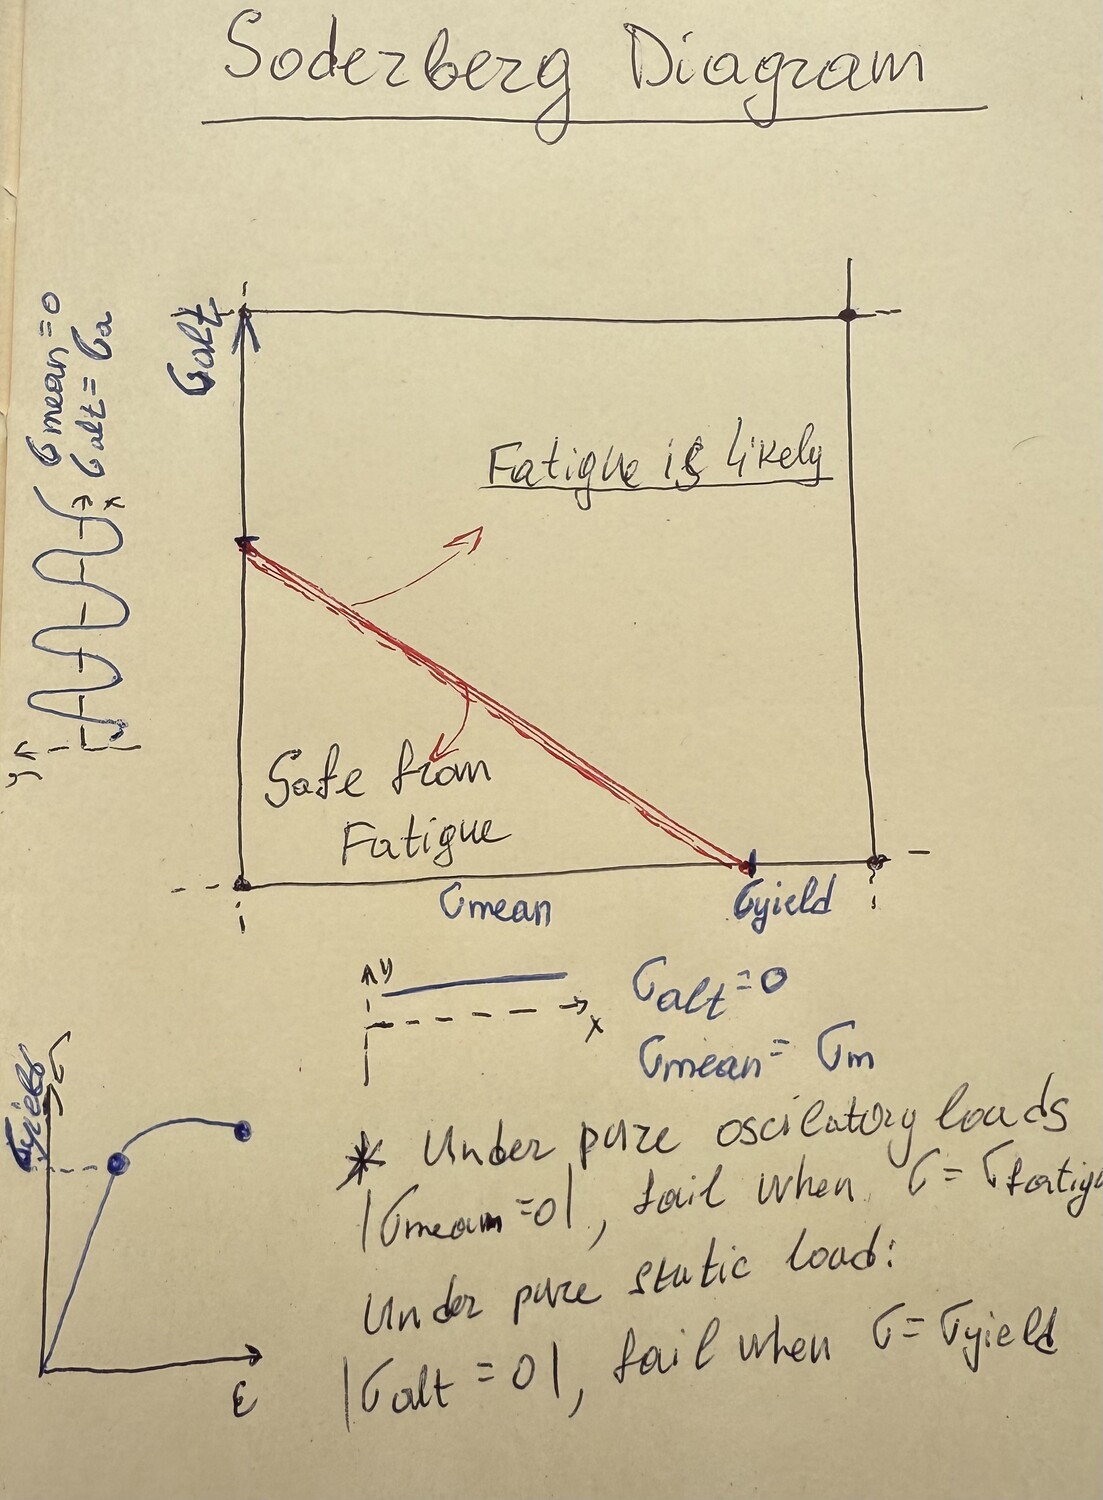 Soderberg Diagram
σalt
σmean=0
σalt=σa
y
x
Fatigue is likely
Safe from
Fatigue
σmean
σyield
y
x
σalt=0
σmean= σm
σyield
σ
ε
* Under pure oscilatory loads
|σmean=0|, fail when σ= σfatigu
Under pure static load:
|σalt = 0|, fail when σ= σyield